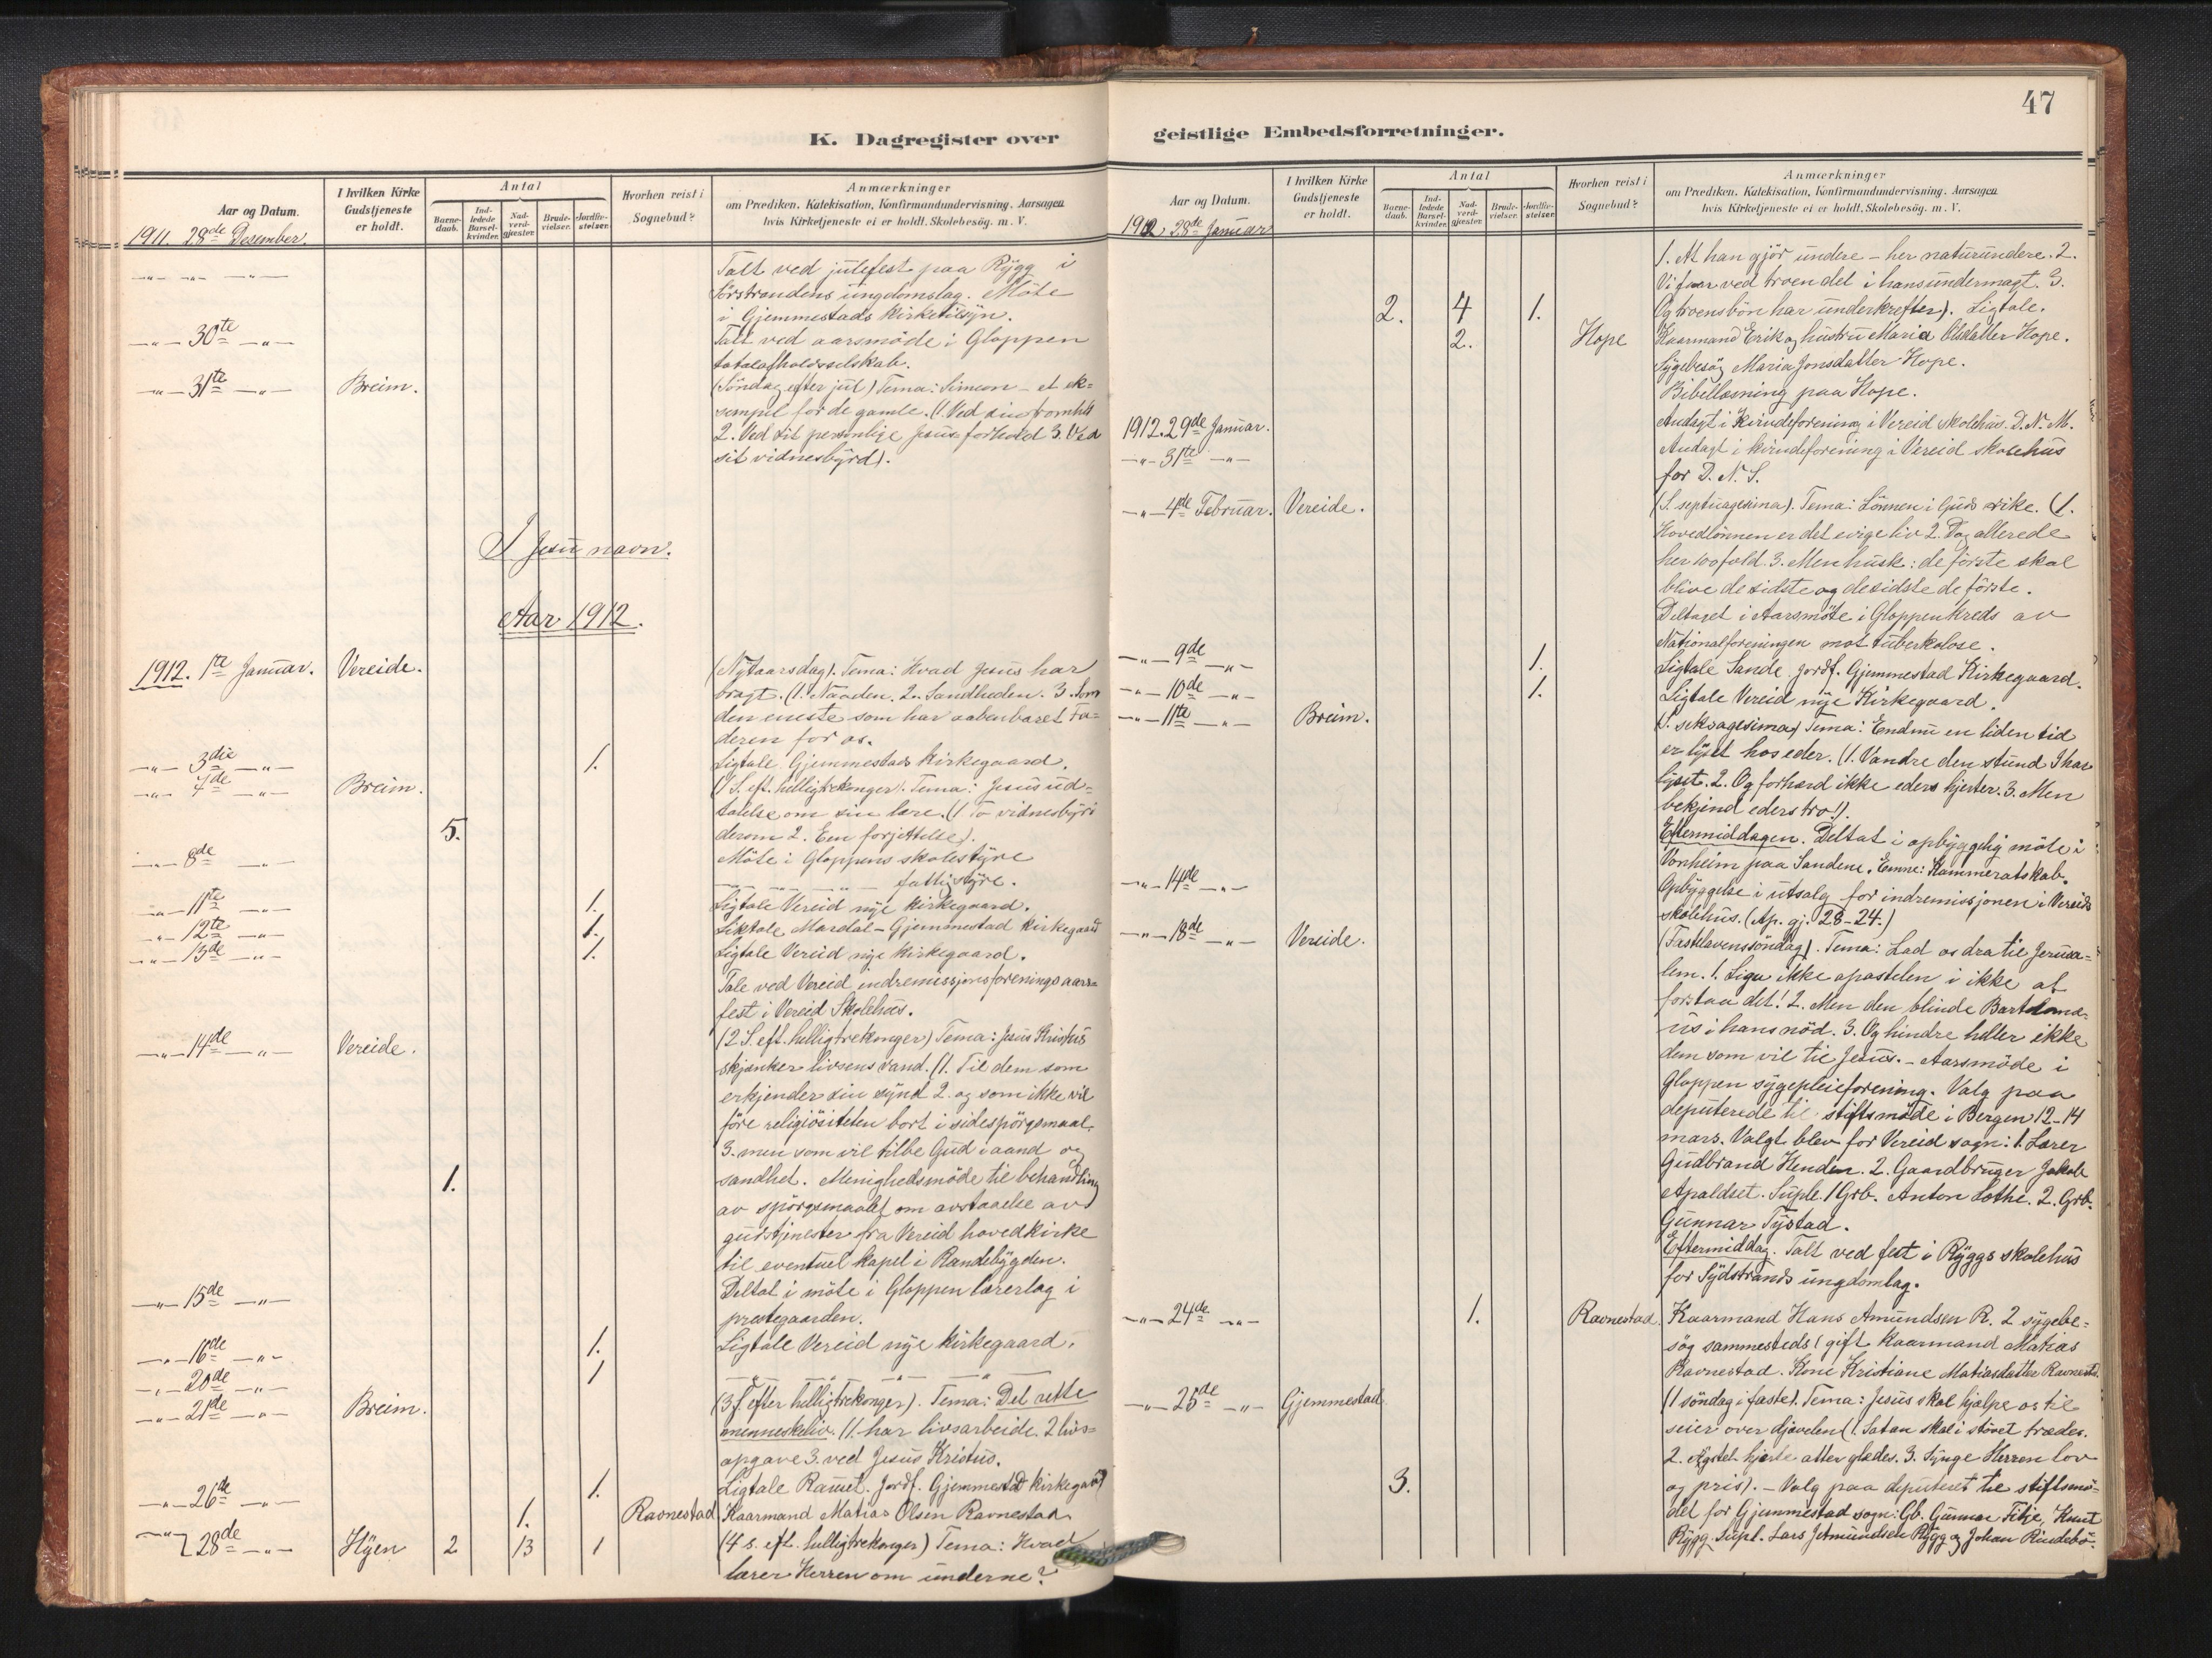 K. Dagregister over
Aar og Datum.
I hvilken Kirke Gudstjeneste er holdt.
Antal
Barne-daab.
Ind-ledede Barsel-kvinder.
Nad-verd-gjester.
Brude-vielser.
Jordfæ-stelser.
Hvorhen reist i Sognebud?
Anmærkninger
om Prædiken, Katekisation, Konfirmandundervisning, Aarsagen
hvis Kirketjeneste ei er holdt, Skolebesög. m. V.
1911. 28de Desember.
Talt ved julefest paa Rygg i
Sörstrandens ungdomslag. Möte
i Gjemmestads kirketilsyn.
30te
Talt ved aarsmöde i Gloppen
totalafholdsselskab.
31te Breim.
(Söndag efter jul) Tema: Simeon – et ek=
sempel for de gamle. (1. Ved sin fromhet
2. Ved sit personlige Jesus-forhold 3. Ved
sit vidnesbyrd).
I Jesu navn.
Aar 1912.
1912. 1te Januar. Vereide.
(Nytaarsdag). Tema: Hvad Jesus har
bragt. (1. Naaden. 2. Sandheden. 3. Som
den eneste som har aabenbaret Fa=
deren for os.
3die 1.
Ligtale Gjemmestads kirkegaard.
7de Breim.
(1 S. eft. helligtrekonger). Tema: Jesus ud=
talelse om sin lære. (1 To vidnesbyrd
5. derom 2. Een forjettelse).
8de
Möte i Gloppens skolestyre
fattigstyre.
11te 1. Ligtale Vereid nye kirkegaard.
12te 1. Liktale Mardal – Gjemmestad kirkegaard
13de 1. Ligtale Vereid nye kirkegaard.
Tale ved Vereid indremissjonsforenings aars=
fest i Vereid Skolehus.
14de Vereide.
(2 S. eft. helligtrekonger) Tema: Jesus Kristus
skjænker livsens vand. (1. Til dem som
erkjender sin synd 2. og som ikke vil
före religiösiteten bort i sidespörgsmaal.
3. men som vil tilbe Gud i aand og
1. sandhet. Menighedsmöde til behandling
av spörgsmaalet om avstaaelse av
gudstjenester fra Vereid hovedkirke
til eventuel kapel i Randebygden.
15de
Deltat i möte i Gloppen lærerlag i
prestegaarden.
16de 1. Ligtale Vereid nye kirkegaard.
20de 1
21de Breim.
(3 S. efter helligtrekonger). Tema: Det rette
menneskeliv. (1. har livsarbeide. 2 livs=
opgave 3. ved Jesus Kristus.
26de 1. Ligtale Rauset. Jordf. Gjemmestad kirkegaard
1. Ravnestad. Kaarmand Matias Olsen Ravnestad.
28de Hyen 2 13 1
(4 s. eft. helligtrekonger) Tema: Hvad
lærer Herren om underne?
47
geistlige Embedsforretninger.
Aar og Datum.
I hvilken Kirke Gudstjeneste er holdt.
Antal
Barne-daab.
Ind-ledede Barsel-kvinder.
Nad-verd-gjester.
Brude-vielser.
Jordfæ-stelser.
Hvorhen reist i Sognebud?
Anmærkninger
om Prædiken, Katekisation, Konfirmandundervisning, Aarsagen
hvis Kirketjeneste ei er holdt, Skolebesög. m. V.
1912 28de Januar
1. At han gjör undere – her naturundere. 2.
Vi faar ved troen del i hans undermagt. 3.
2. 4 1. Og troensbön har underkrefter). Ligtale.
2. Hope Kaarmand Erik og hustru Maria Olsdatter Hope.
Sygebesög Maria Jonsdatter Hope.
Bibellæsning paa Hope.
1912. 29de Januar.
Andagt i Kvindeforening i Vereid skolehus. D. N. M.
31te
Andagt i kvindeforening i Vereid skolehus
for D. N. S.
4de Februar. Vereide.
(S. septuagesima). Tema: Lönnen i Guds rike. (1.
Hovedlönnen er det evige liv 2. Dog allerede
her 100 fold. 3. Men husk: de förste skal
blive de sidste og de sidste de förste.
Deltaget i Aarsmöte i Gloppen kreds av
Nationalforeningen mot tuberkulose.
9de 1. Ligtale Sande jordf. Gjemmestad Kirkegaard.
10de 1. Ligtale Vereid nye Kirkegaard.
11te Breim.
(S. seksagesima) Tema: Endnu en liden tid
er lyset hos eder. (1. Vandre den stund I har
lyset. 2. Og forhærd ikke eders hjerter. 3. Men
bekjend eders tro!).
Eftermiddagen. Deltat i opbyggelig möte i
Vonheim paa Sandene. Emne: Kammeratskab.
14de
Opbyggelse i utsalg for indremissjonen i Vereids
skolehus. (Ap. gj. 28-24.)
18de Vereide.
(Fastelavenssöndag). Tema: Lad os dra til Jerusa=
lem. 1. Lign ikke apostelen i ikke at
forstaa det! 2. Men den blinde Bartolomæ=
us i hans nöd. 3. Og hindre heller ikke
dem som vil til Jesus. – Aarsmöde i
Gloppen sygepleieforening. Valg paa
deputerede til stiftsmöde i Bergen 12-14
mars. Valgt blev for Vereid sogn: 1. Lærer
Gudbrand Henden. 2. Gaardbruger Jakob
Apaldset. Suple. 1 Grb. Anton Lothe. 2. Grb.
Gunnar Tystad.
Eftermiddag. Talt ved fest i Ryggs skolehus
for Sydstrands ungdomlag.
24de 1. Ravnestad. Kaarmand Hans Amundsen R. 2 sygebe=
sög sammesteds (gift Kaarmand Matias
Ravnestad. Kone Kristiane Matiasdatter Ravnestad.
25de Gjemmestad
(1 söndag i faste). Tema: Jesus skal hjælpe os til
seier over djævelen (1. Satan skal i stövet trædes.
2. Ængstet hjerte atter glædes. 3. Synge Herren lov
3. og pris). – Valg paa deputeret til stiftsmö=
det for Gjemmestad sogn: Gb. Gunnar Fitje, Knut
Rygg. Supl. Lars J. Amundsen Rygg og Johan Rindebö.